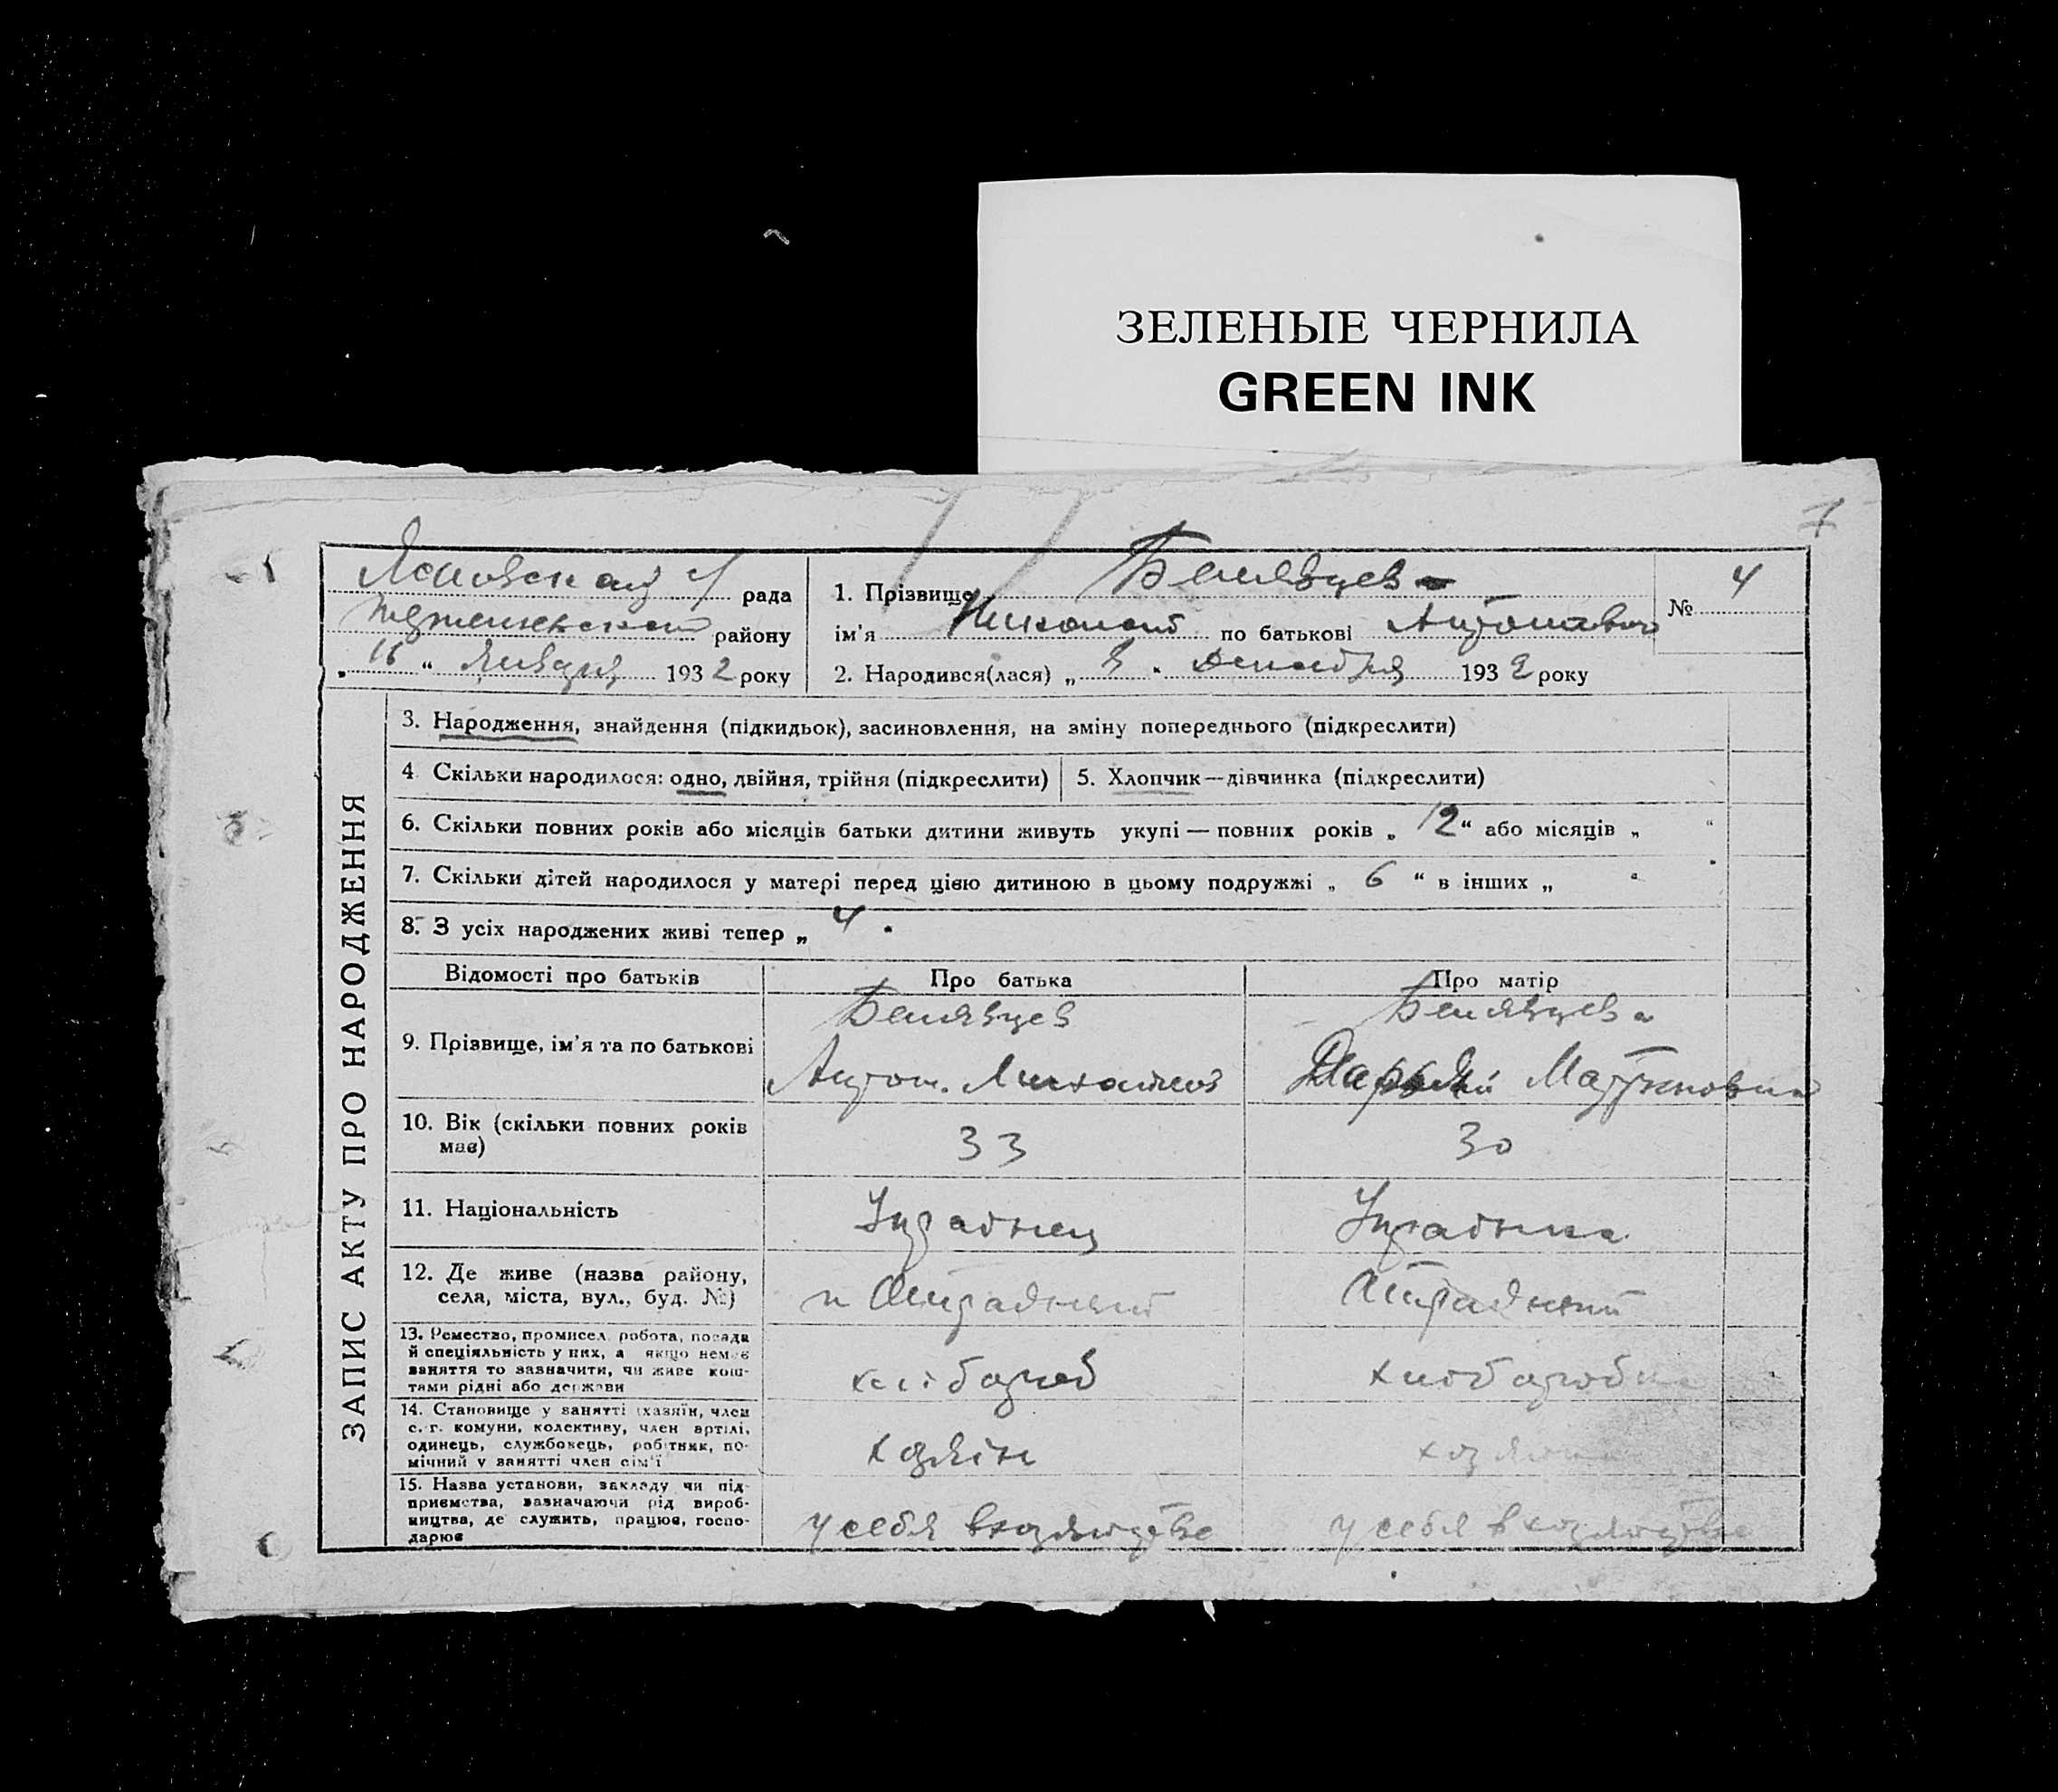 ЗЕЛЕНЫЕ ЧЕРНИЛА
GREEN INK
7
рада
району
„ 16 “ Января 1932 року
1. Прізвище Белявцев
ім'я Николай по батькові Антонович
2. Народився(лася) „ “ Декабря 193 року
№ 4
ЗАПИС АКТУ ПРО НАРОДЖЕННЯ
3. Народження, знайдення (підкидьок), засиновлення, на зміну попереднього (підкреслити)
4 Скільки народилося: одно, двійня, трійня (підкреслити)
5. Хлопчик—дівчинка (підкреслити)
6. Скільки повних років або місяців батьки дитини живуть укупі — повних років „ 12 “ або місяців „ “
7. Скільки дітей народилося у матері перед цією дитиною в цьому подружжі „ 6 “ в інших „ “
8. З усіх народжених живі тепер „ 4 “
Відомості про батьків
Про батька
Про матір
9. Прізвище, ім'я та по батькові
Белявцев
Антон.
Белявцева
10. Вік (скільки повних років
має)
33
30
11. Національність
12. Де живе (назва району,
села, міста, вул., буд. №)
13. Ремество, промисел, робота, посада
й спеціяльність у них, а якщо немає
заняття то зазначити, чи живе кош-
тами рідні або держави
14. Становище у занятті (хазяїн, член
с. г. комуни, колективу, член артілі,
одинець, службовець, робітник, по-
мічний у занятті член сім'ї
хазяін
15. Назва установи, закладу чи під-
приємства, зазначаючи рід вироб-
ництва, де служить, працює, госпо-
дарює
у себя в хозяйстве
у себя в хозяйстве